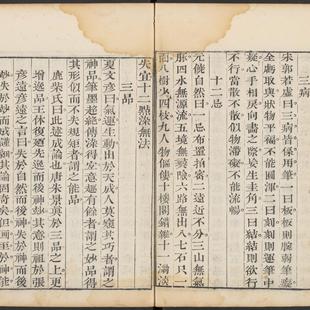 三病
宋郭若虛曰三病皆係用筆一曰板板則腕弱筆癡
全虧取與狀物平褊不能圓渾二曰刻刻則運筆中
疑心手相戾向畫之際妄生圭角三曰結結則欲行
不行當散不散似物滯礙不能流暢
十二忌
元饒自然曰一忌布置拍密二遠近不分三山無氣
脈四水無源流五境無夷險六路無出入七石只一
面八樹少四枝九人物傴僂十樓閣錯雜十一滃淡
失宜十二點染無法
三品
夏文彥曰氣韻生動出於天成人莫窺其巧者謂之
神品筆墨超絕傳染得宜意趣有餘者謂之妙品得
其形似而不失規矩者謂之能品
鹿柴氏曰此述成論也唐朱景真於三品之上更
增逸品王休復乃先逸而後神其意則祖於張
彥遠彥遠之言曰失於自然而後神失於神而後
妙失於妙而成謹細其論固奇矣但畫至於神能